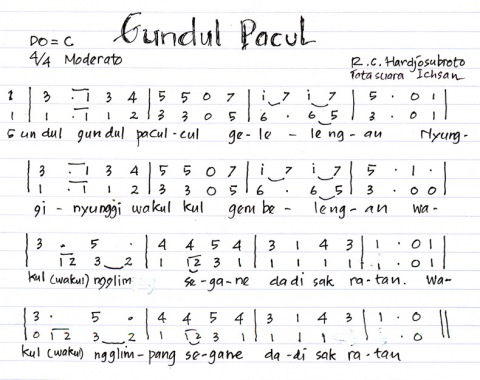 Gundul Pacul
DO = C
4/4 Moderato
R.C. Hardjosubroto
Tota suara Ichsan
1 | 3 . 1 3 4 | 5 5 0 7 | i 7 i 7 | 5 . 0 1 |
1 | 1 . 1 1 2 | 3 3 0 5 | 6 . 6 5 | 3 . 0 1 |
Gundul gundul pacul-cul ge-le-leng-an Nyung-
| 3 . 1 3 4 | 5 5 0 7 | i 7 i 7 | 5 . 1 .
| 1 . 1 1 2 | 3 3 0 5 | 6 . 6 5 | 3 . 0 0
gi-nyunggi wakul kul gembe-leng-an wa-
| 3 . 5 . | 4 4 5 4 | 3 1 4 3 | 1 . 0 1 |
1 2 3 2 | 1 1 2 3 1 | 1 1 1 1 | 1 . 0 1 |
kul (wakul) ngglim se-ga-ne dadi sak ra-tan. Wa-
| 3 . 5 . | 4 4 5 4 | 3 1 4 3 | 1 . 0 ||
| 0 1 2 3 2 | 1 1 2 3 1 | 1 1 1 1 | 1 . 0 ||
kul (wakul) ngglim-pang se-gane da-di sak ra-tan